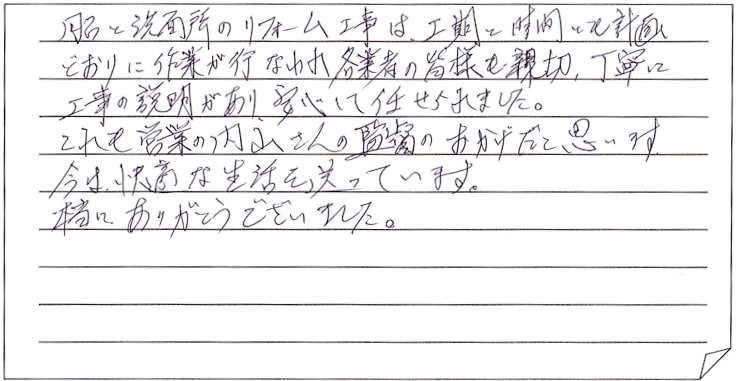 風呂と洗面所のリフォーム工事は、工期と時間とも計画
どおりに作業が行なわれ各業者の皆様も親切、丁寧に
工事の説明があり、安心して任せられました。
これも営業の内山さんの監督のおかげだと思います。
今は、快適な生活を送っています。
本当にありがとうございました。